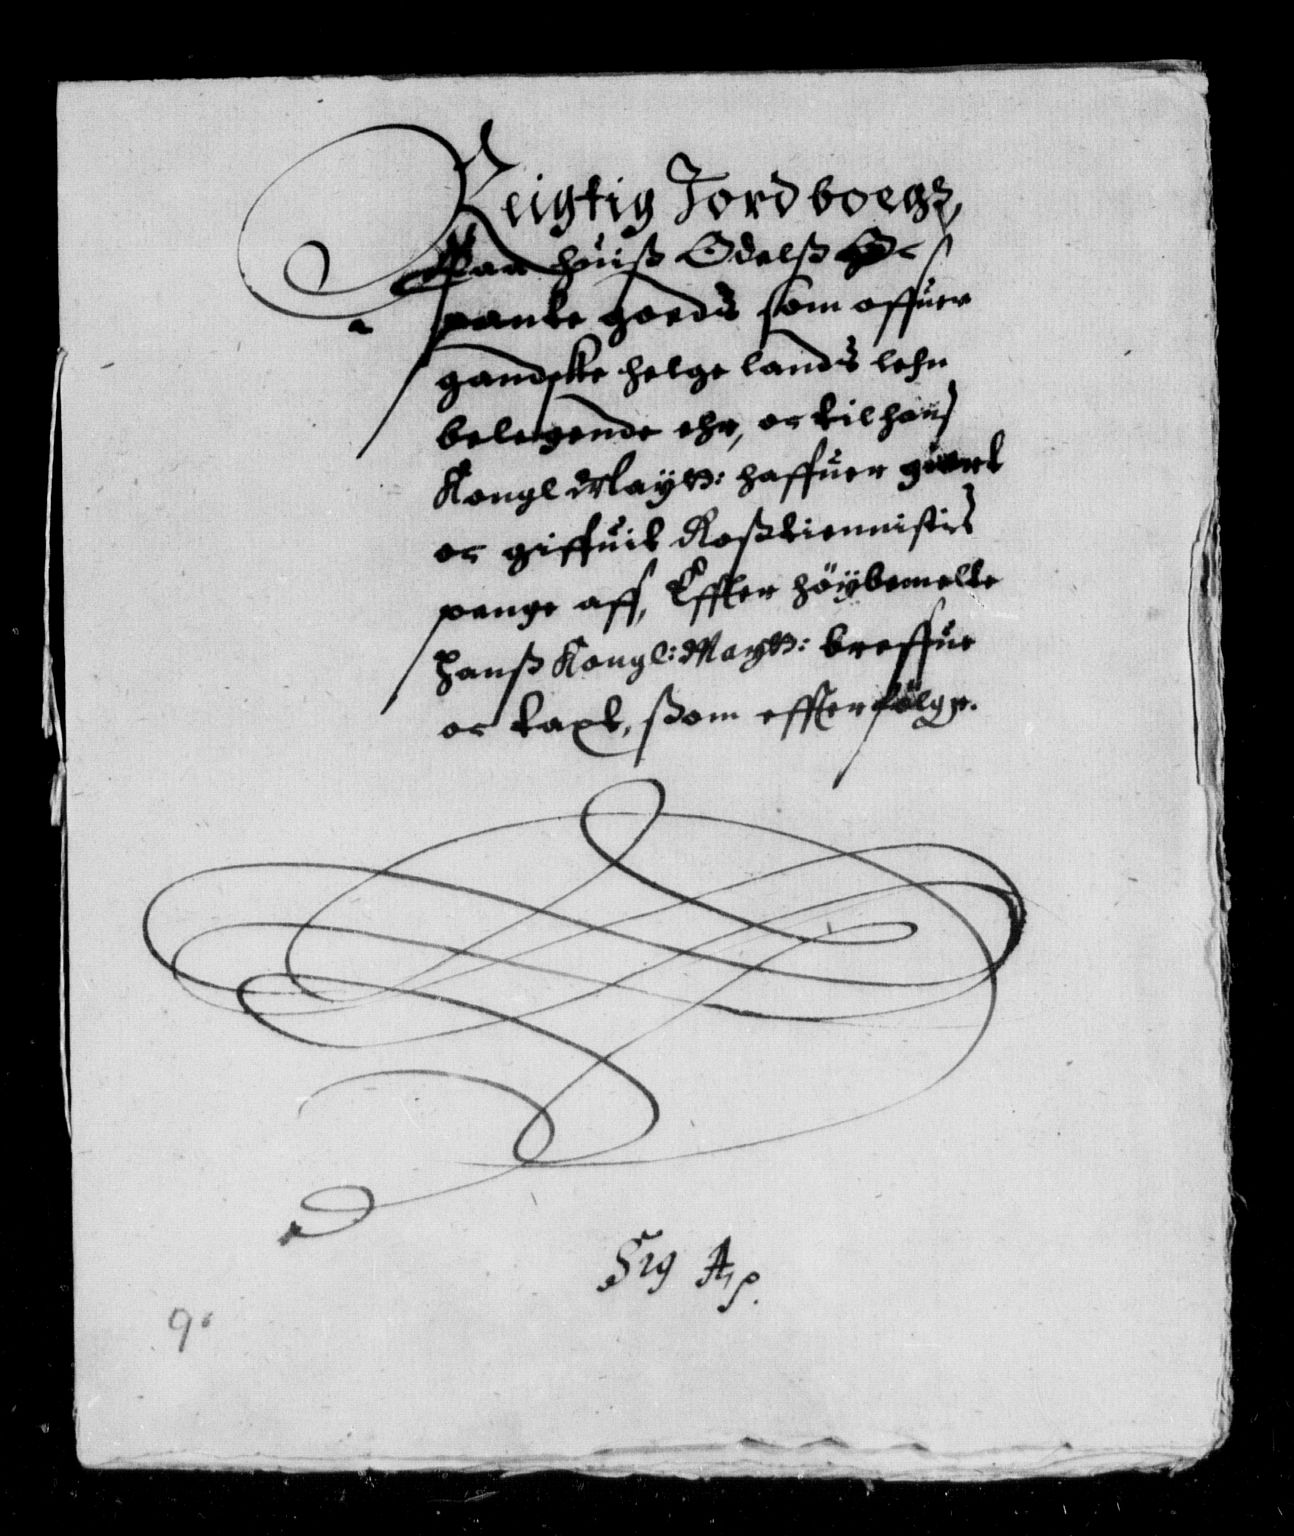 Regtig Jordboegh,
Paa huus Odelss Oc
pante goeds som offuer
gandske helge lands lehn
belegende ehr, oc til hans
Kongl Maytt: haffuer giort
oc giffuit Rosstiennistis
penge aff, Effter höybemelte
Hanss Kongl: Maytt: breffue
oc taxt, ssom effterfölge.
9